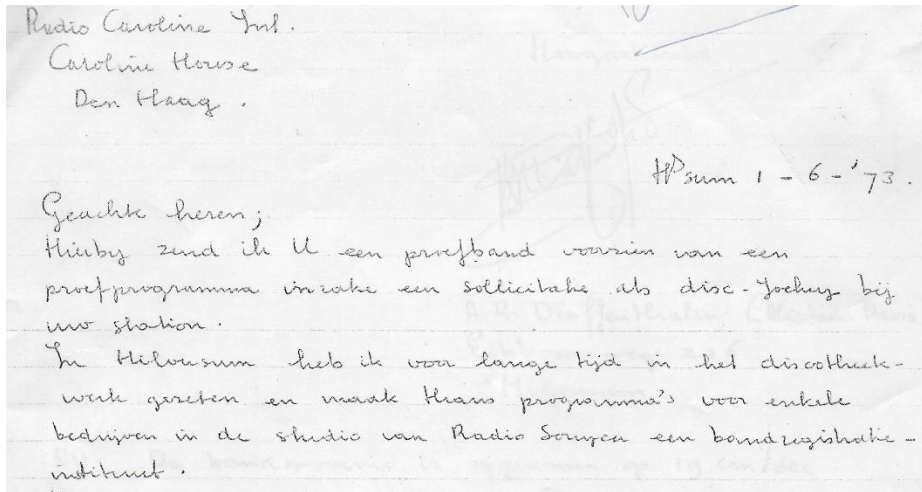 Radio Caroline Int.
Caroline House
Den Haag.
H'sum 1 - 6 - '73.
Geachte heren;
Hierby zend ik U een proefband voorzien van een
proefprogramma inzake een sollicitatie als disc-Jockey bij
uw station.
In Hilversum heb ik voor lange tijd in het discotheek-
werk gezeten en maak thans programma's voor enkele
bedrijven in de studio van Radio een bandregistratie-
instituut.